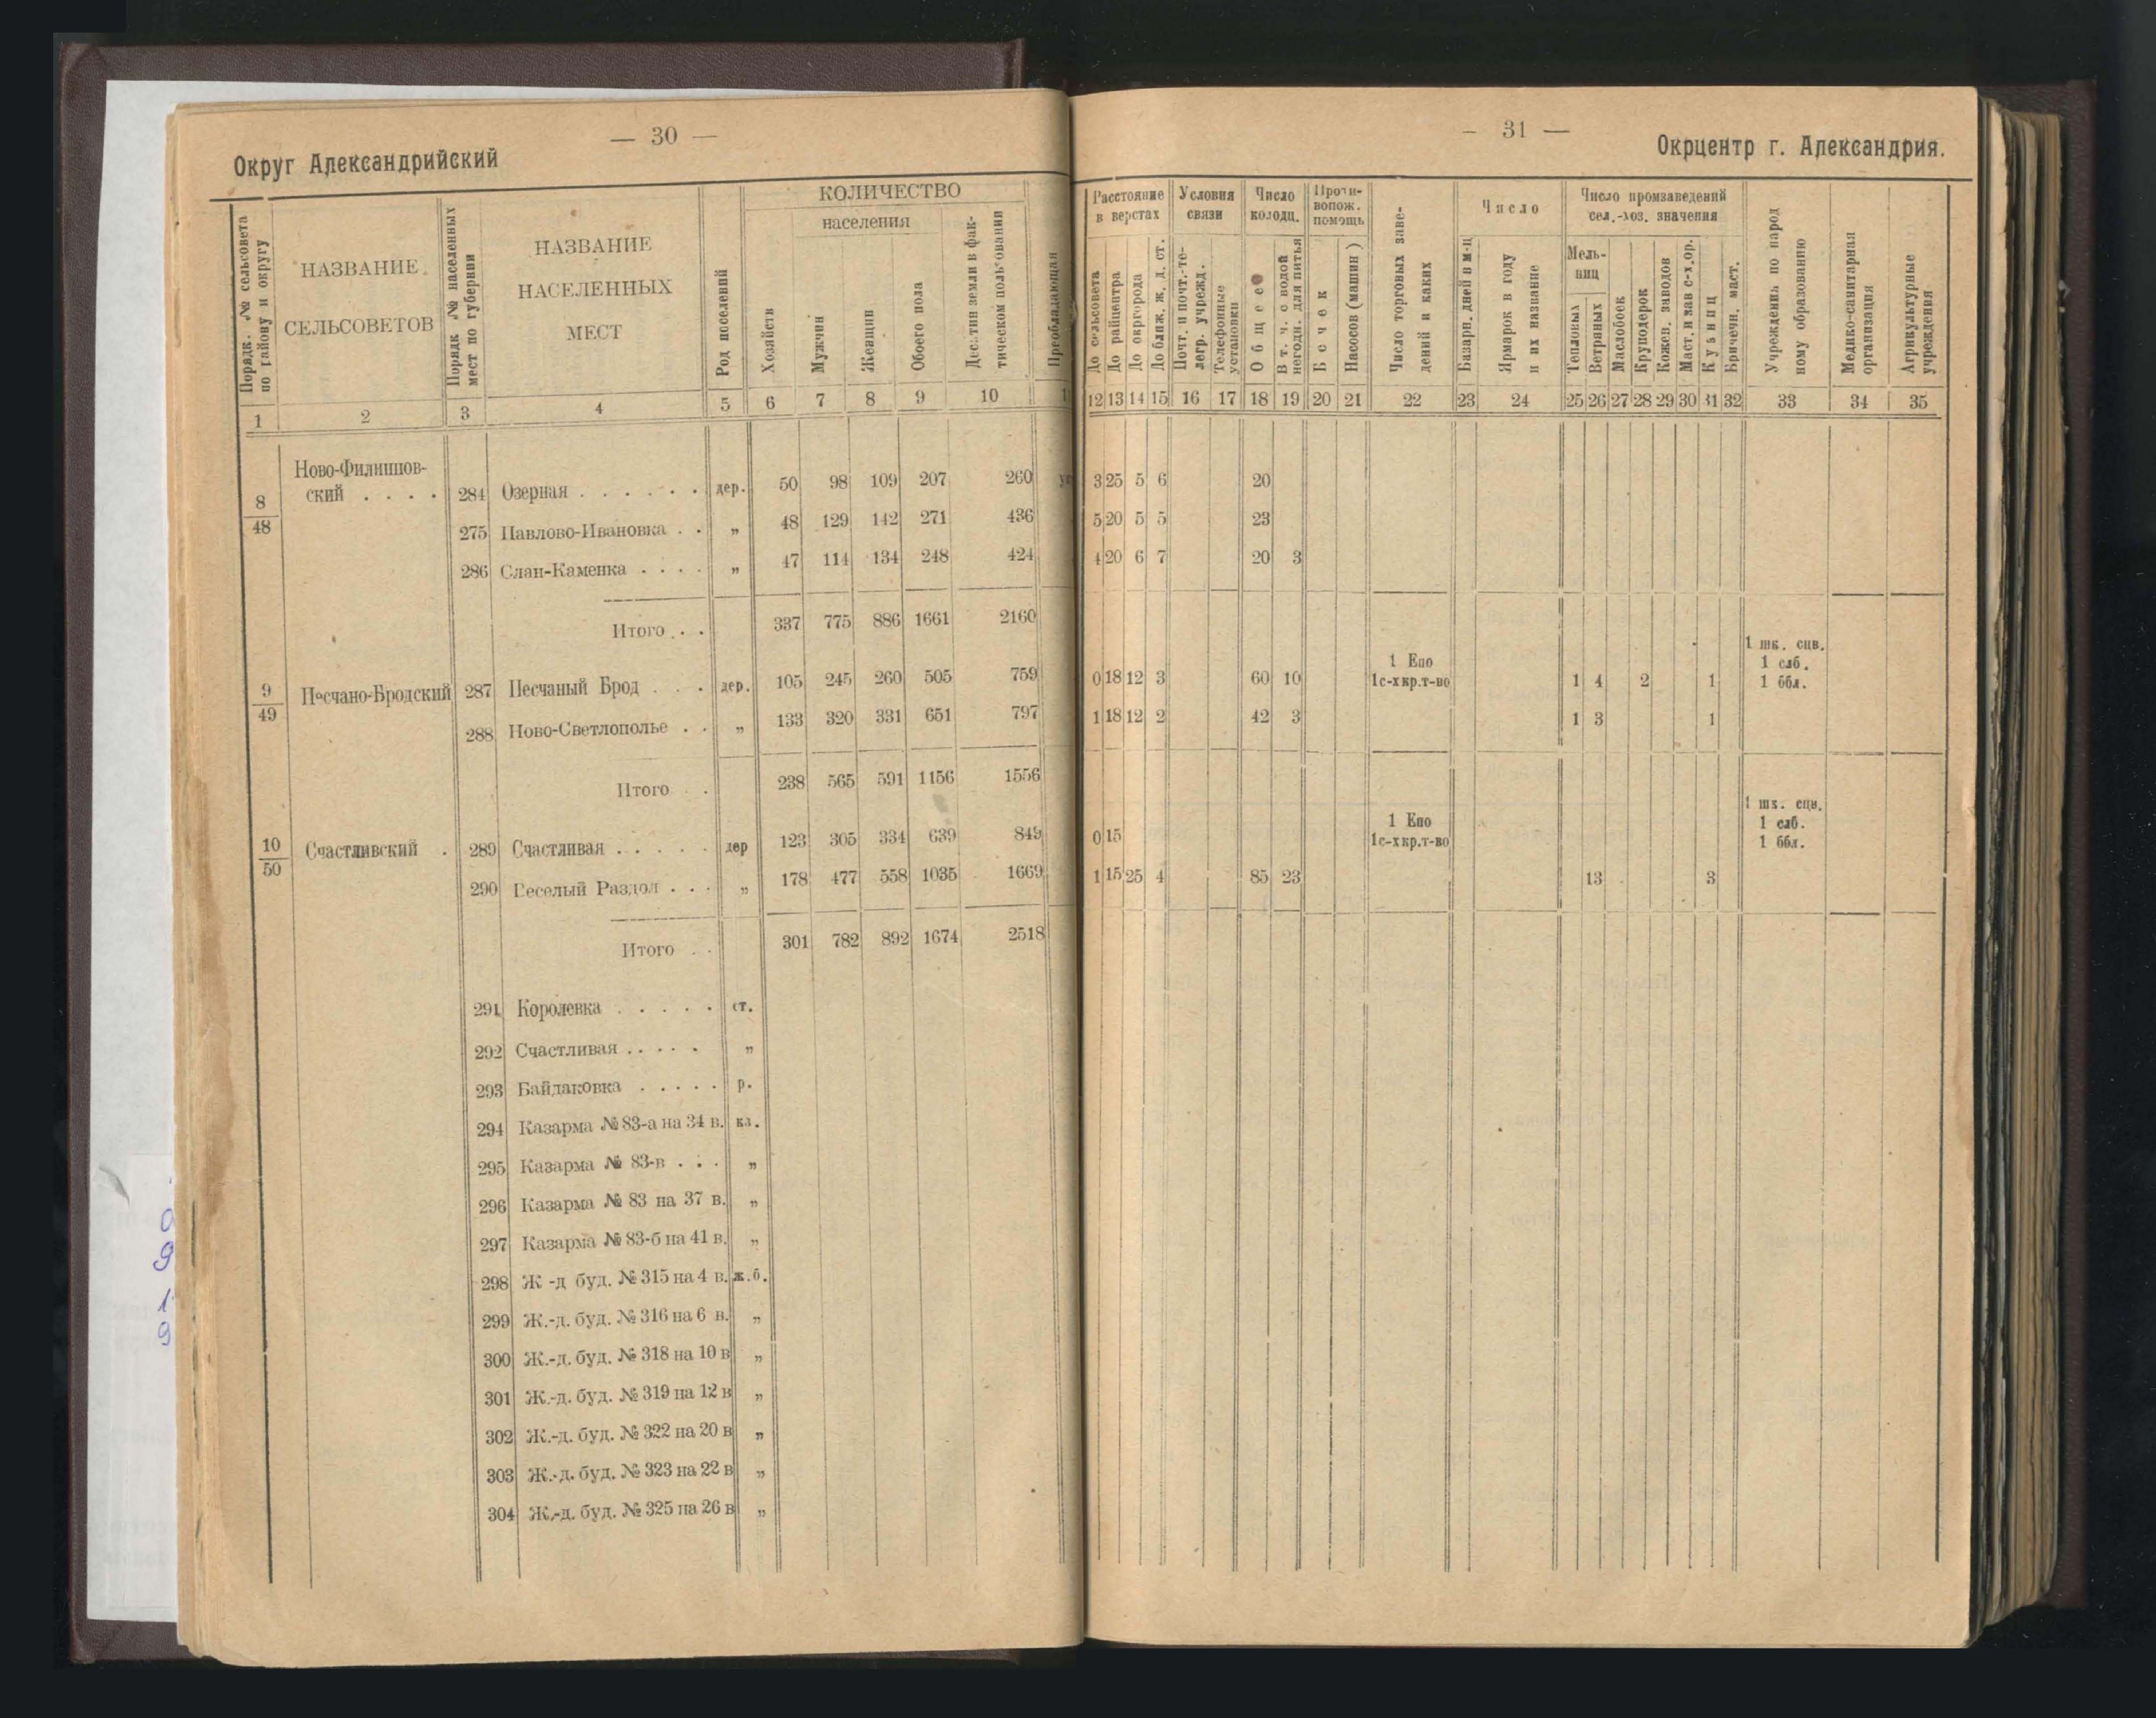 — 30 —
Округ Александрийский
Порядк. №№ сельсовета по району и округу
НАЗВАНИЕ
СЕЛЬСОВЕТОВ
Порядк №№ населенных мест по губернии
НАЗВАНИЕ
НАСЕЛЕННЫХ
МЕСТ
Род поселений
КОЛИЧЕСТВО
населения
Хозяйств
Мужчин
Женщин
Обоего пола
Десятин земли в фак-
тическом пользовании
Преобладающая
1 2 3 4 5 6 7 8 9 10 1
8/48 Ново-Филиппов-
ский . . . . 284 Озерная . . . . . . дер. 50 98 109 207 260
275 Павлово-Ивановка . . „ 48 129 142 271 436
286 Слан-Каменка . . . . „ 47 114 134 248 424
Итого . . 337 775 886 1661 2160
9/49 Песчано-Бродский 287 Песчаный Брод . . . дер. 105 245 260 505 759
288 Ново-Светлополье . . „ 133 320 331 651 797
Итого . 238 565 591 1156 1556
10/50 Счастливский . 289 Счастливая . . . . . дер 123 305 334 639 849
290 Веселый Раздол . . . „ 178 477 558 1035 1669
Итого . . 301 782 892 1674 2518
291 Королевка . . . . . ст.
292 Счастливая . . . . . „
293 Байдаковка . . . . . р.
294 Казарма № 83-а на 34 в. кз.
295 Казарма № 83-в . . . „
296 Казарма № 83 на 37 в. „
297 Казарма № 83-б на 41 в. „
298 Ж -д буд. № 315 на 4 в. ж.б.
299 Ж.-д. буд. № 316 на 6 в. „
300 Ж.-д. буд. № 318 на 10 в „
301 Ж.-д. буд. № 319 на 12 в „
302 Ж.-д. буд. № 322 на 20 в „
303 Ж.-д. буд. № 323 на 22 в „
304 Ж.-д. буд. № 325 на 26 в „
— 31 —
Окрцентр г. Александрия.
Расстояние
в верстах
До сельсовета
До райцентра
До окргорода
До ближ. ж. д. ст.
Условия
связи
Почт. и почт.-те-
легр. учрежд.
Телефонные
установки
Число
колодц.
Общее
В т. ч. с водой
негодн. для питья
Проти-
вопож.
помощь
Бочек
Насосов (машин)
Число торговых заве-
дений и каких
Число
Базарн. дней в м-ц
Ярмарок в году
и их название
Число промзаведений
сел.-хоз. значения
Мель-
ниц
Тепловых
Ветряных
Маслобоек
Круподерок
Кожен. заводов
Маст. и зав с-х.ор.
Кузниц
Бричечн. маст.
Учреждень по народ
ному образованию
Медико-санитарная
организация
Агрикультурные
учреждения
12 13 14 15 16 17 18 19 20 21 22 23 24 25 26 27 28 29 30 31 32 33 34 35
3 25 5 6 20
5 20 5 5 23
4 20 6 7 20 3
1 шк. сцв.
1 Епо 1 слб.
0 18 12 3 60 10 1 с-х кр. т-во 1 4 2 1 1 ббл.
1 18 12 2 42 3 1 3 1
1 шк. сцв.
1 Епо 1 слб.
0 15 1 с-х кр. т-во 1 ббл.
1 15 25 4 85 23 13 3